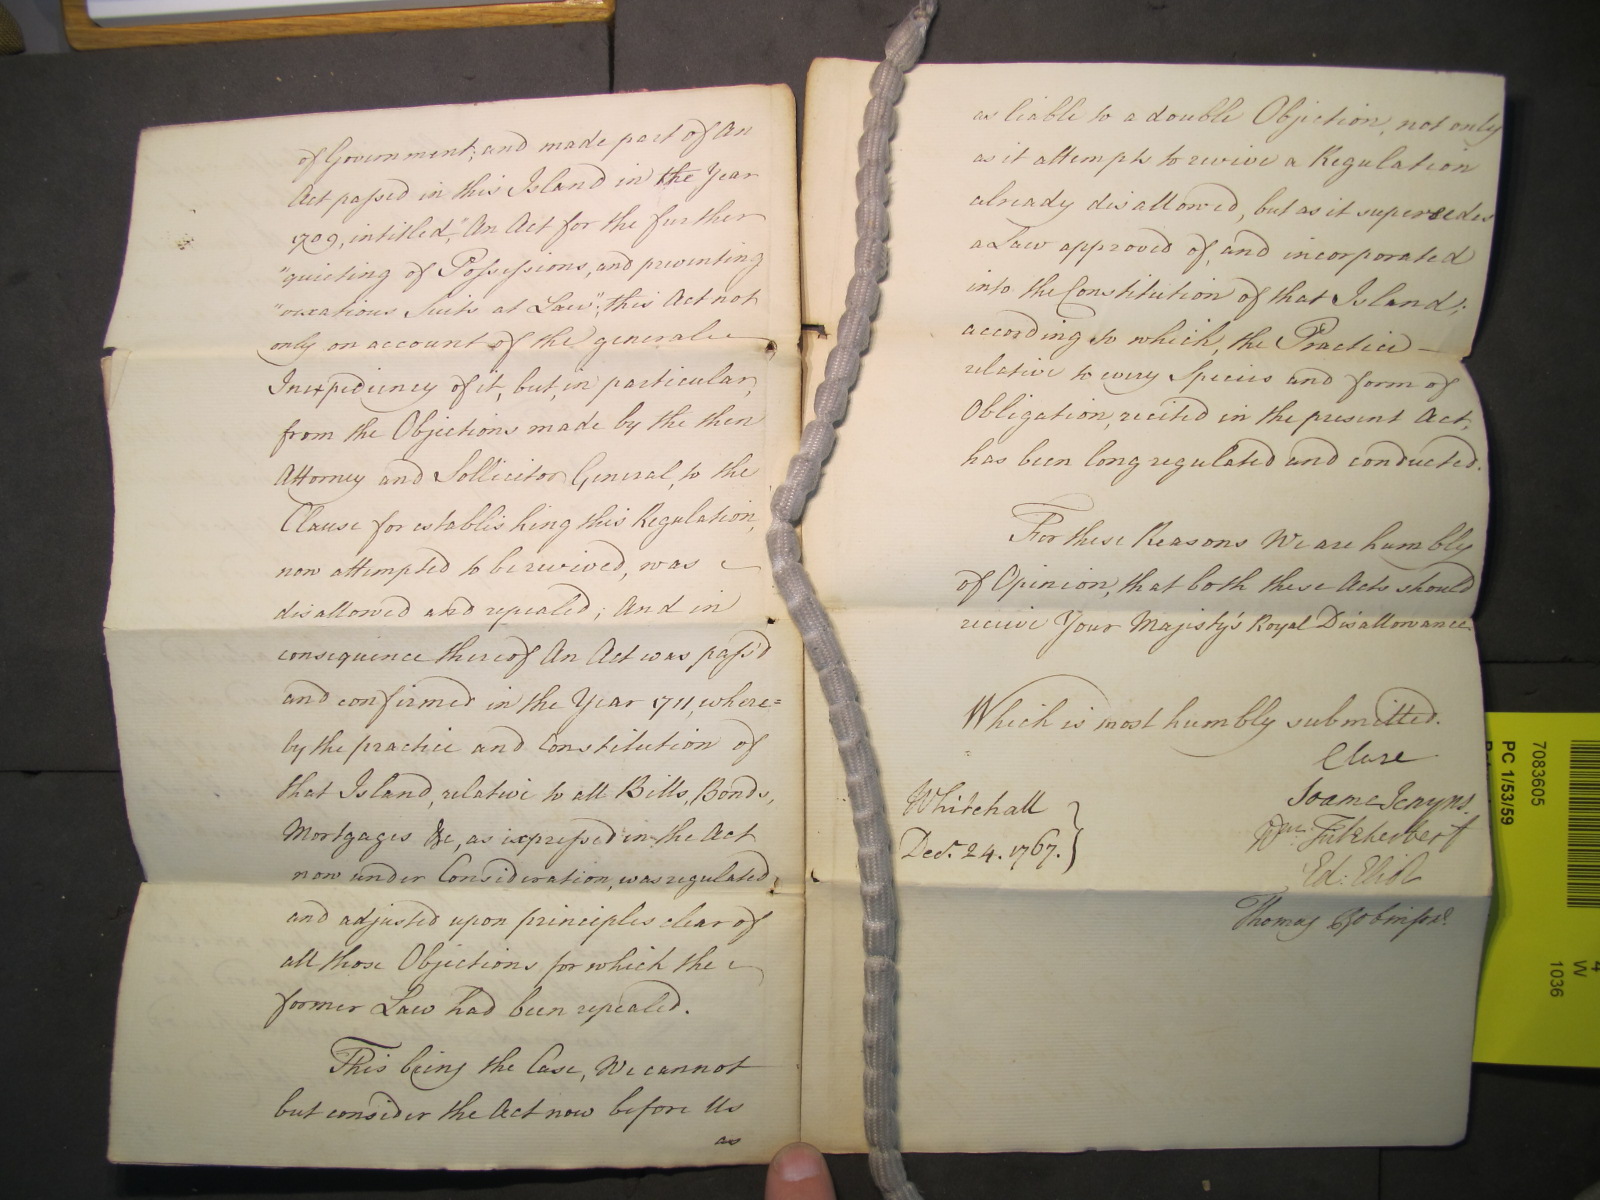 of Government; and made part of An
Act passed in this Island in the Year
1709, intitled, "An Act for the further
"quieting of Possessions, and preventing
"vexatious Suits at Law"; this Act not
only on account of the general
Inexpediency of it, but, in particular,
from the Objections made by the then
Attorney and Sollicitor General, to the
Clause for establishing this Regulation,
now attempted to be revived, was
disallowed and repealed; And in
consequence thereof An Act was pass'd
and confirmed in the Year 1711, where=
by the practice and Constitution of
that Island, relative to all Bills, Bonds,
Mortgages &c, as expressed in the Act
now under Consideration, was regulated
and adjusted upon principles clear of
all those Objections for which the
former Law had been repealed.
This being the Case, We cannot
but consider the Act now before Us
as
as liable to a double Objection, not only
as it attempts to revive a Regulation
already disallowed, but as it supersedes
a Law approved of, and incorporated
into the Constitution of that Island;
according to which, the Practice
relative to every Species and form of
Obligation, recited in the present Act,
has been long regulated and conducted.
For these Reasons We are humbly
of Opinion, that both these Acts should
receive Your Majesty's Royal Disallowance.
Which is most humbly submitted.
Clare
Soame Jenyns.
Wm: Fitzherbert
Ed: Eliot
Thomas Robinson.
Whitehall
Decr. 24. 1767.
7083605
PC 1/53/59
4
W
1036